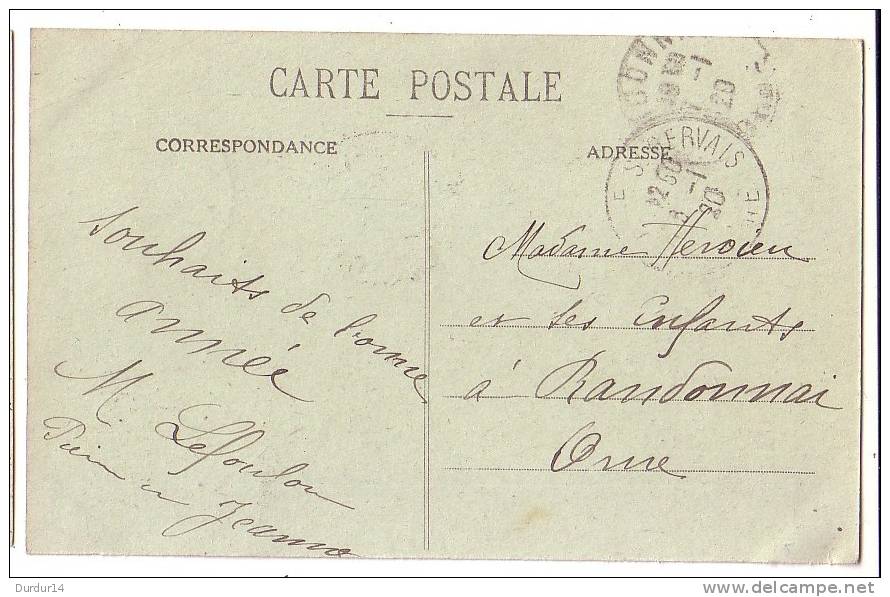 CARTE POSTALE
CORRESPONDANCE
ADRESSE
ST GERVAIS
Souhaits de bonne
année
M. Lefoulon
Jeanne
Madame
et ses Enfants
à Randonnai
Orne
Durdur14
www.delcampe.net